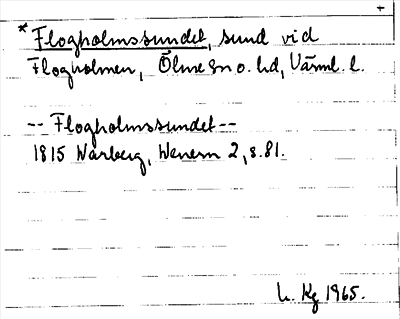 +
*Flogholmssundet, sund vid
Flogholmen, Ölme sn o. hd, Värml. l.
-- Flogholmssundet --
1815 Warberg, Wenern 2, s. 81.
L. Kg 1965.